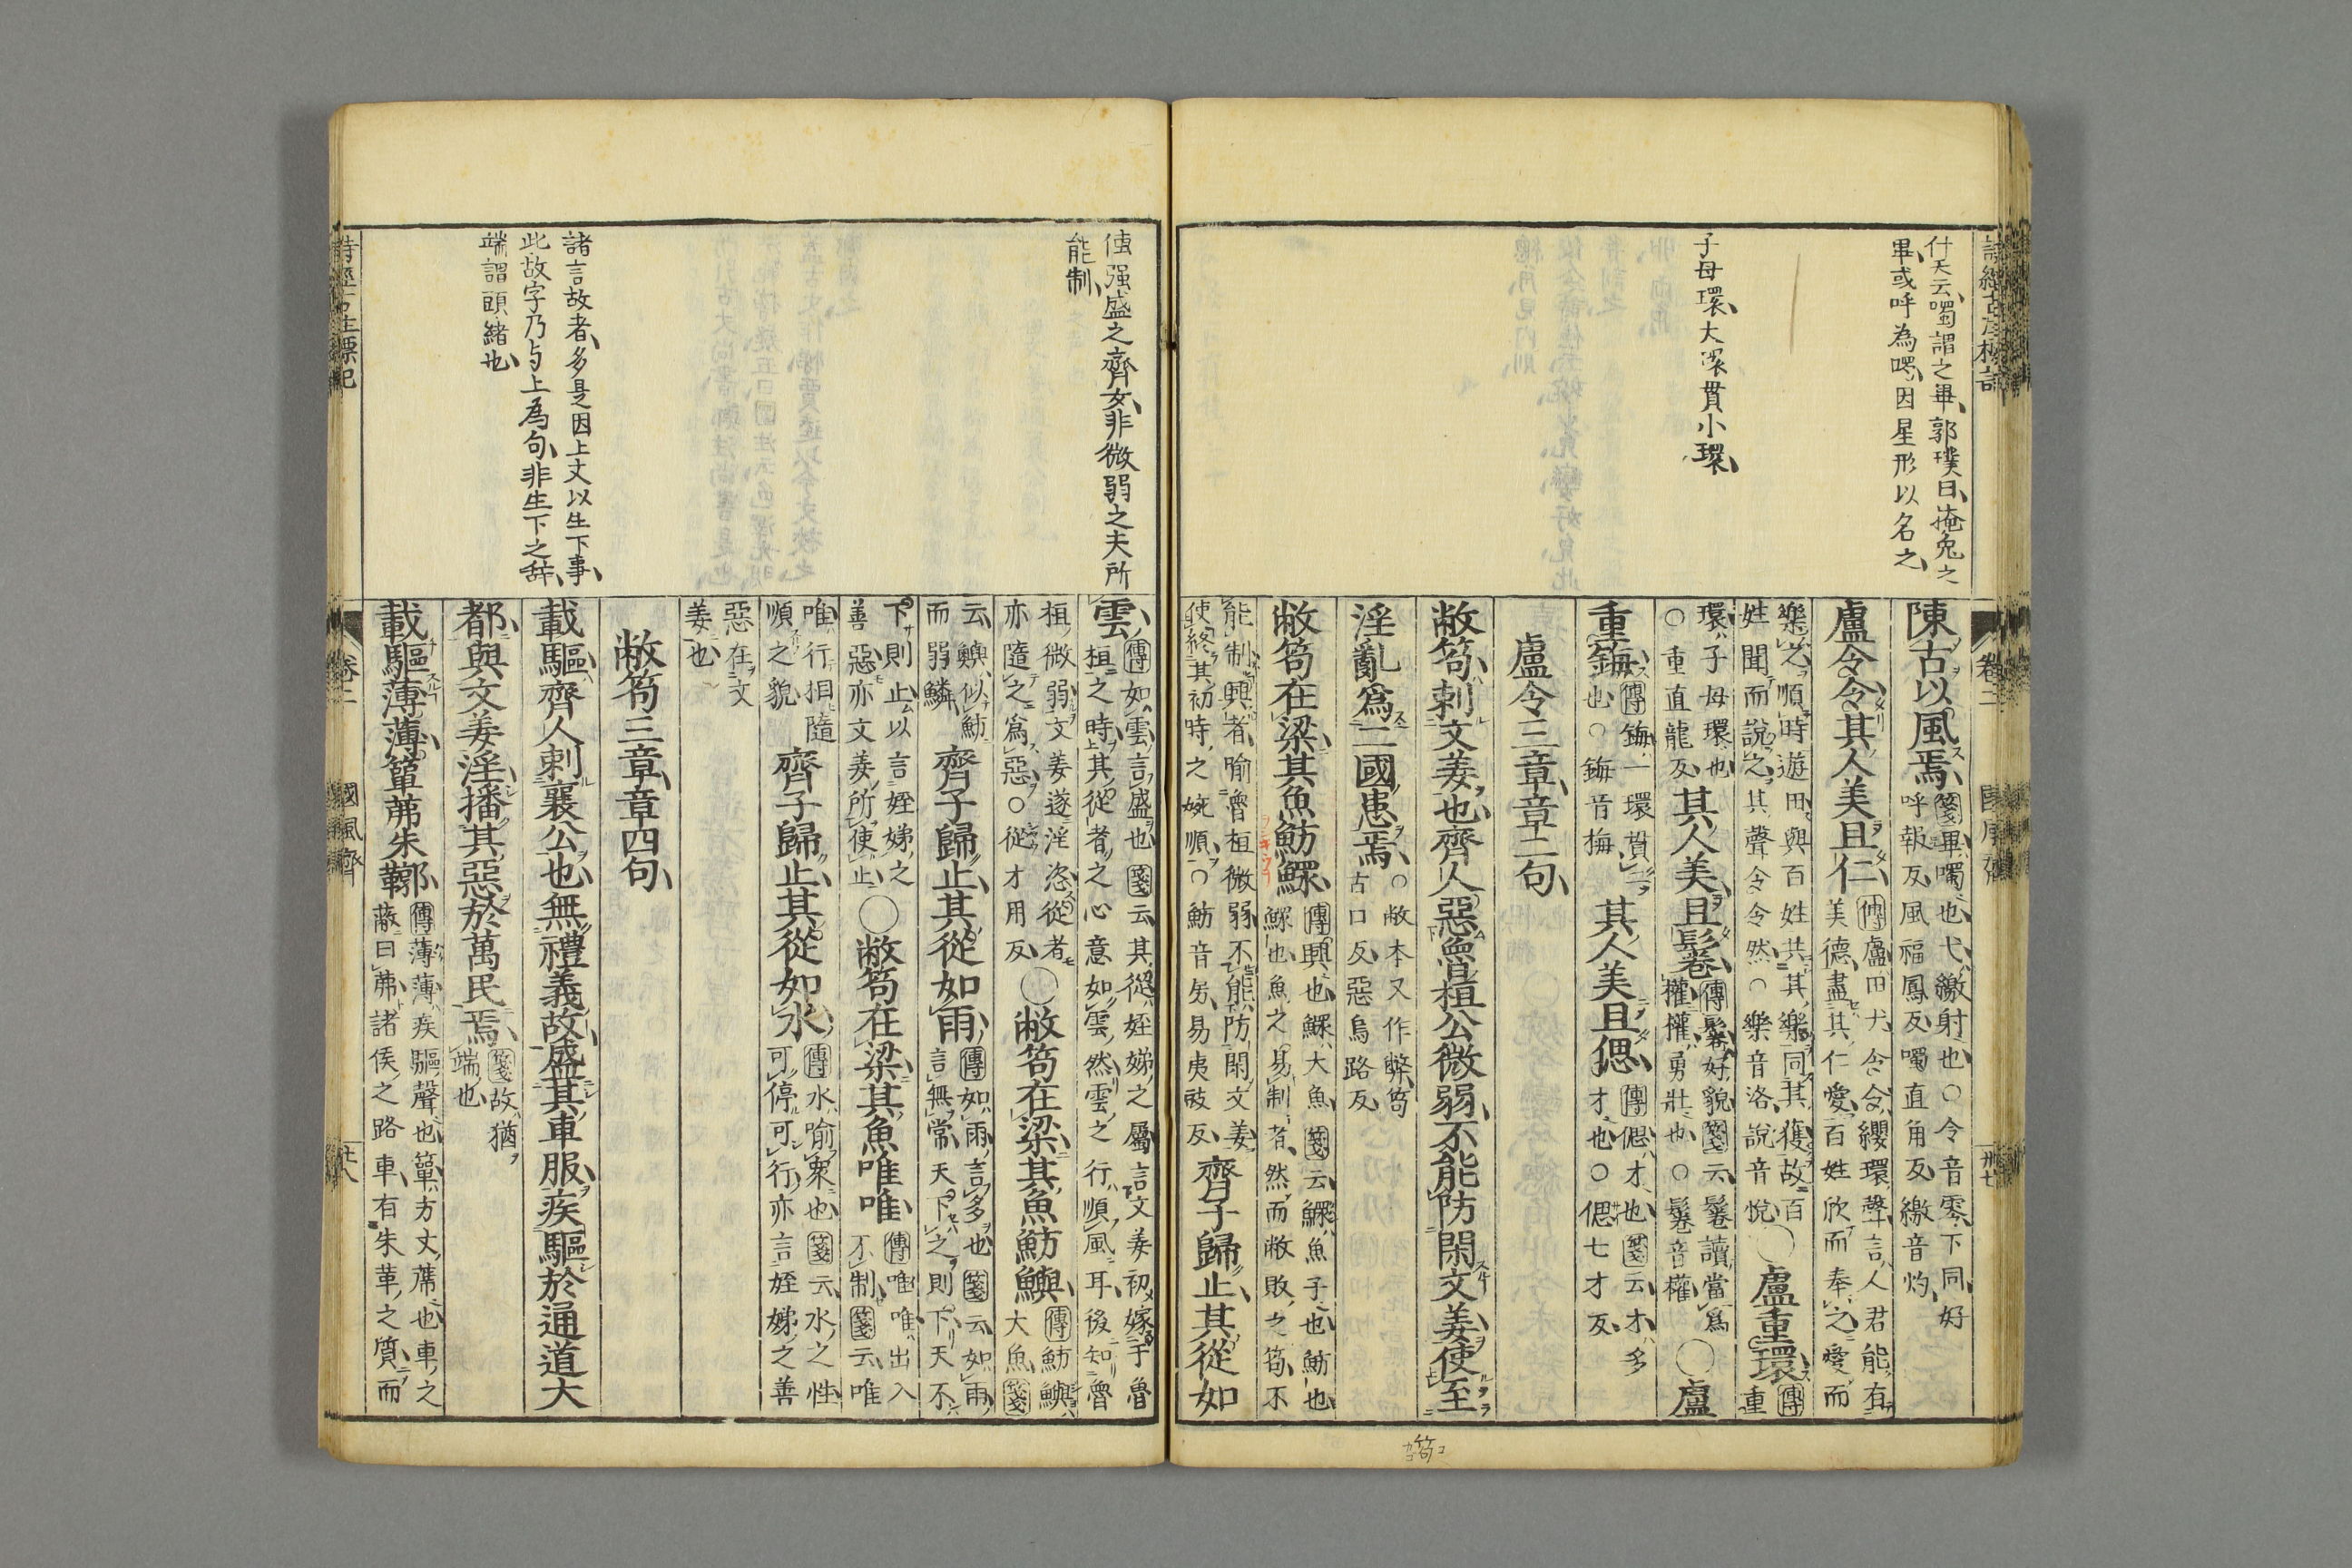 什天云噣謂之畢郭璞曰掩兔之
畢或呼為噣因星形以名之
子母環大環貫小環
陳古以風焉 箋畢噣也弋繳射也○令音零下同好
呼報反風福鳳反噣直角反繳音灼
盧令令其人美且仁 傳盧田犬令令纓環聲言人君能有
美德盡其仁愛百姓欣而奉之愛而
樂之順時遊田與百姓共其樂同其獲故百
姓聞而說之其聲令令然○樂音洛說音悅 ○盧重環 傳
重
環子母環也
○重直龍反 其人美且鬈 傳鬈好貌箋云鬈讀當爲
權權勇壯也○鬈音權 ○盧
重鋂 傳鋂一環貫二
也○鋂音梅 其人美且偲 傳偲才也箋云才多
才也○偲七才反
盧令三章章二句
敝笱刺文姜也齊人惡魯桓公微弱不能防閑文姜使至
淫亂爲二國患焉 ○敝本又作弊笱
古口反惡烏路反
敝笱在梁其魚魴鰥 傳興也鰥大魚箋云鰥魚子也魴也
鰥也魚之易制者然而敝敗之笱不
能制興者喻魯桓微弱不能防閑文姜
使終其初時之婉順○魴音房易夷豉反 齊子歸止其從如
卷二
國風齊
卅七
笱
傳強盛之齊女非微弱之夫所
能制
諸言故者多是因上文以生下事
此故字乃与上為句非生下之辞
端謂頭緒也
雲 傳如雲言盛也箋云其從姪娣之屬言文姜初嫁于魯
桓之時其從者之心意如雲然雲之行順風耳後知魯
桓微弱文姜遂淫恣從者
亦隨之爲惡○從才用反 ○敝笱在梁其魚魴鱮 傳魴鱮
大魚箋
云鱮似魴
而弱鱗 齊子歸止其從如雨 傳如雨言多也箋云如雨
言無常天下之則下天不
下則止以言姪娣之
善惡亦文姜所使止 ○敝笱在梁其魚唯唯 傳唯唯出入
不制箋云唯
唯行相隨
順之貌 齊子歸止其從如水 傳水喻衆也箋云水之性
可停可行亦言姪娣之善
惡在文
姜也
敝笱三章章四句
載驅齊人刺襄公也無禮義故盛其車服疾驅於通道大
都與文姜淫播其惡於萬民焉 箋故猶
端也
載驅薄薄簟茀朱鞹 傳薄薄疾驅聲也簟方文蓆也車之
蔽曰茀諸侯之路車有朱革之質而
詩經古注標記
卷二
國風齊
卅八